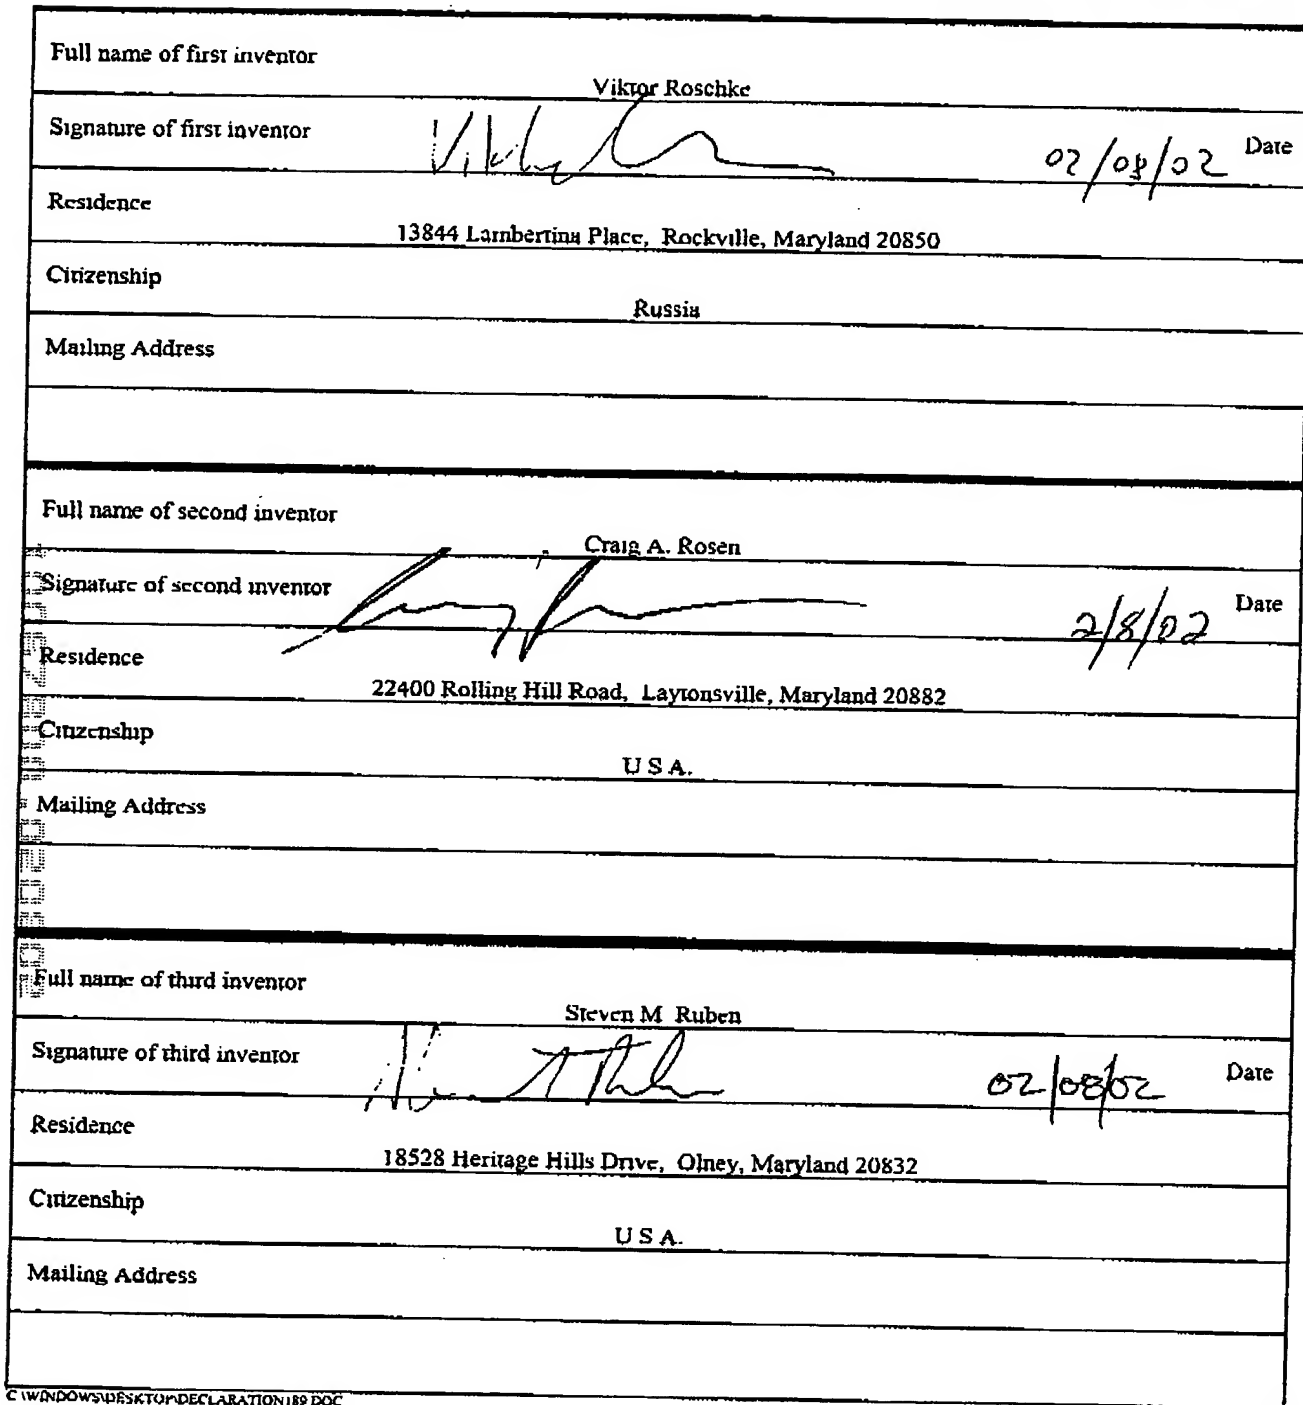 Full name of first inventor
Viktor Roschke
Signature of first inventor
02/08/02 Date
Residence
13844 Lambertina Place, Rockville, Maryland 20850
Citizenship
Russia
Mailing Address
Full name of second inventor
Craig A. Rosen
Signature of second inventor
2/8/02 Date
Residence
22400 Rolling Hill Road, Laytonsville, Maryland 20882
Citizenship
U S A.
Mailing Address
Full name of third inventor
Steven M Ruben
Signature of third inventor
02/08/02 Date
Residence
18528 Heritage Hills Drive, Olney, Maryland 20832
Citizenship
U S A.
Mailing Address
C \WINDOWS\DESKTOP\DECLARATION189 DOC